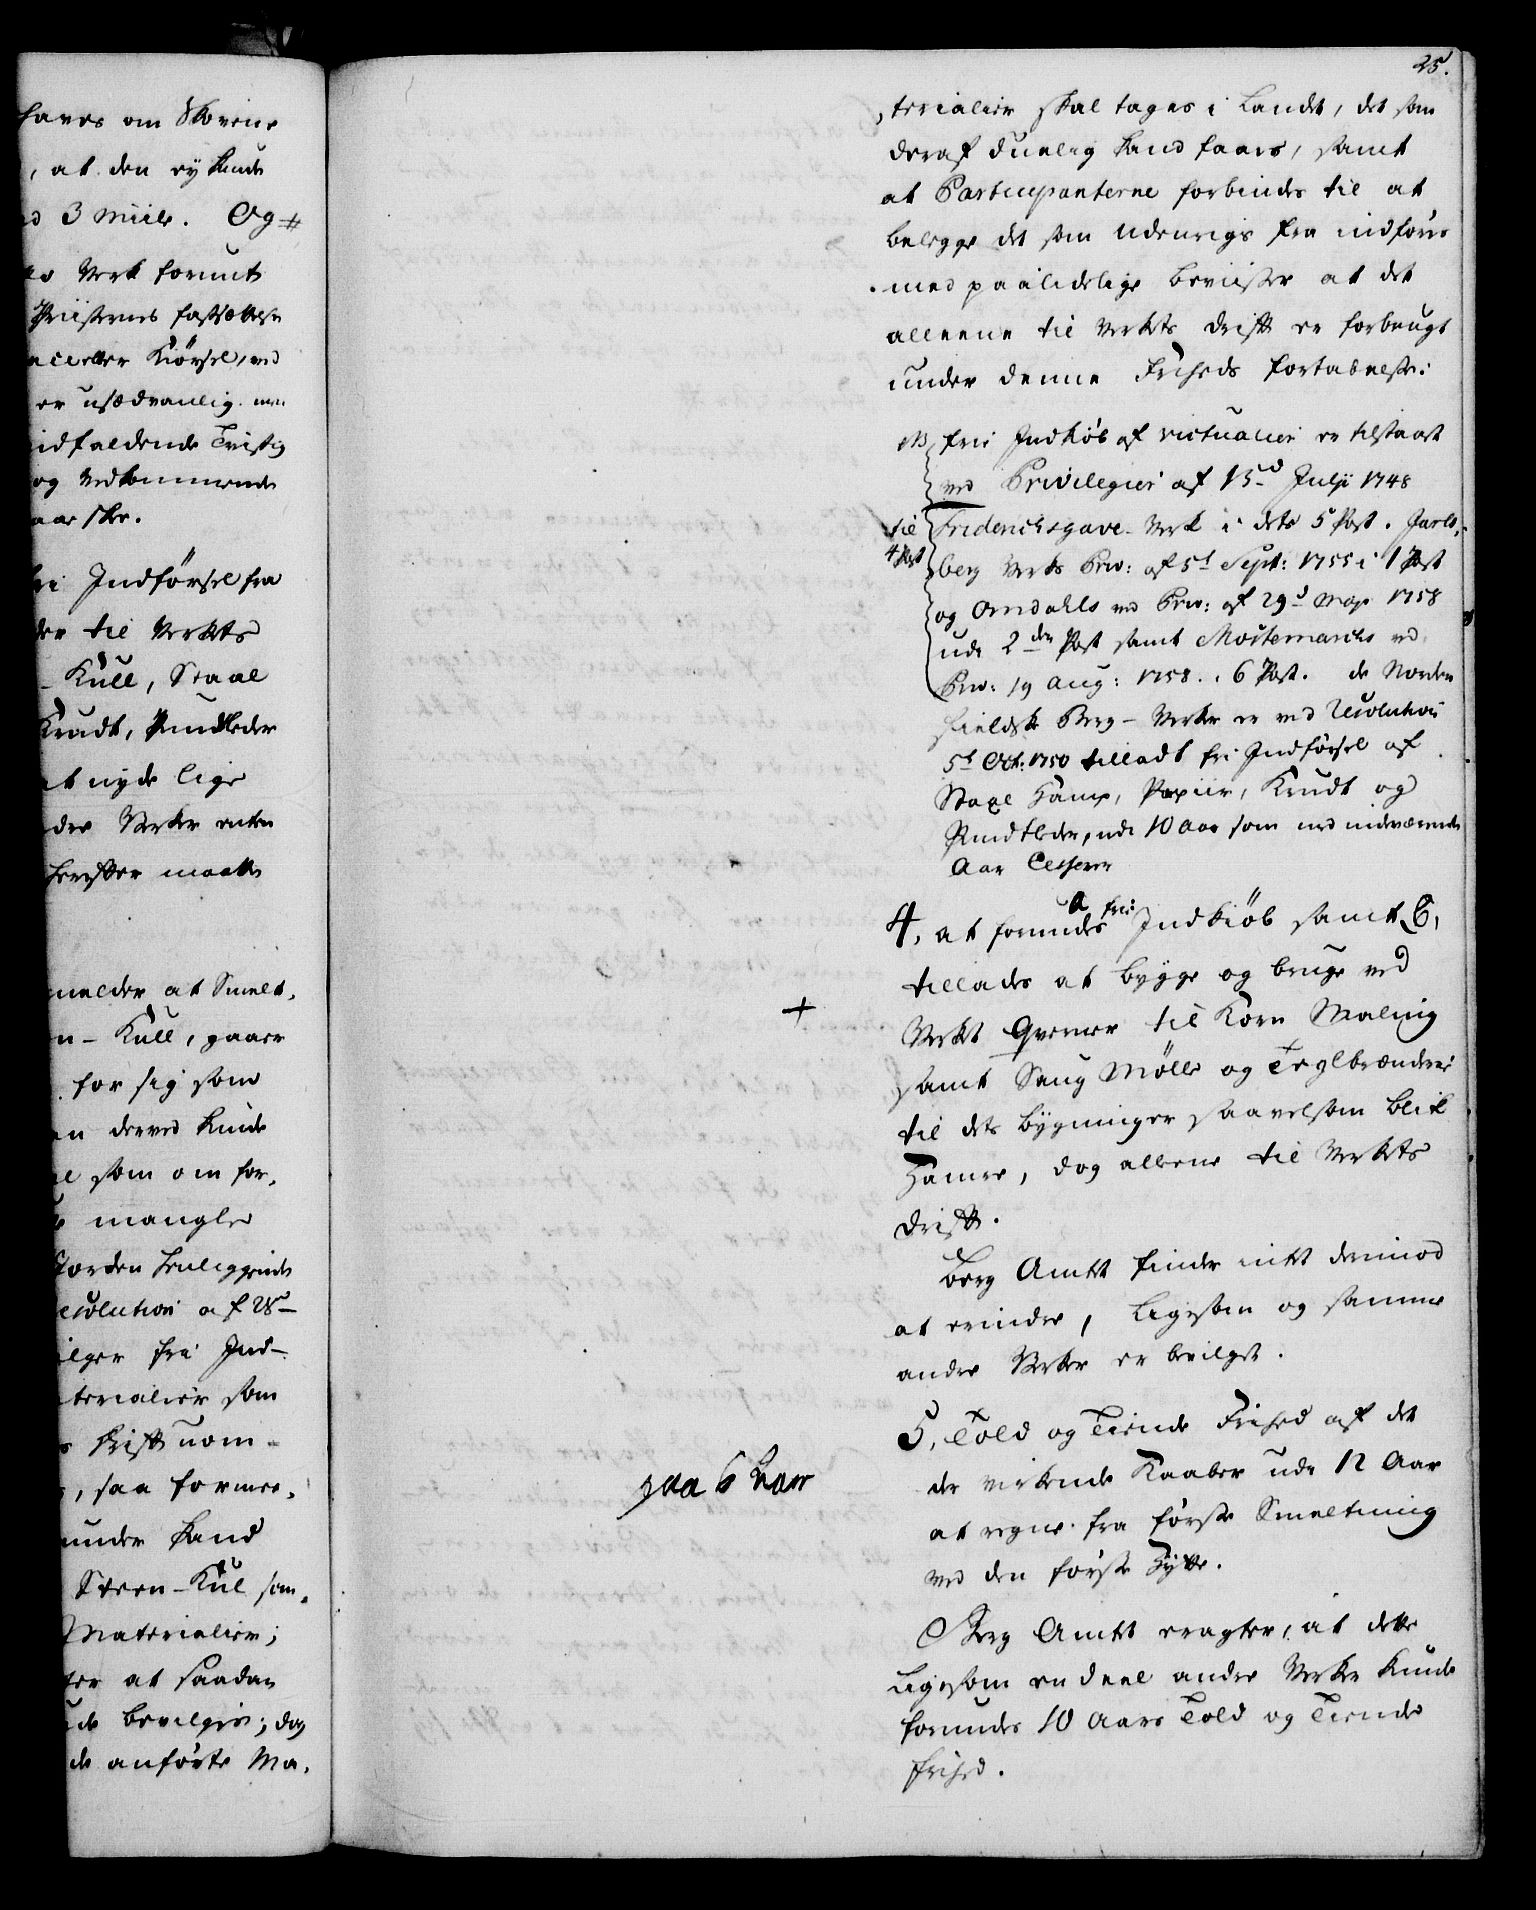 haves om Skovene
, at den ey kunde
3 Miile. Og
Verk forundt
Priisernes fastsættelse
eller Kiørsel, ved
er usædvanlig. men
indfaldende Tvistig
og Vedkommende
aar skee.
fri Indførsel fra
til Verkets
Kull, Staal
Krudt, Pundleder
at nyde lige
Verker enten
herefter maatte
melder at Smelt,
Kull, gaaer
for sig som
derved kunde
som om for,
mangler
Norden henliggende
Resolution af 28de
fri Ind-
terialier som
Drift nom-
, saa formee,
under Land
Steen-Kul som
Materialier;
at saadan
bevilges; dog
de anførte Ma,
25.
terialier skal tages i Landet, det som
deraf duelig kand faaes, samt
at Participanterne forbindes til at
belegge det som Udenrigs fra indføres
med paalidelige beviiser at det
alleene til Verkets Drift er forbrugt
under denne Friheds fortabelse:
NB frie Indkiøb af victualier er tilstaaet
ved Privilegier af 13d Julii 1748
til
4 Post
Friderichsgave Verk i dets 5 Post. Jarls,
berg Verks Priv: af 5t Sept: 1755 i 1 Post
og Omdahls ved Priv: af 29d May 1758
udi 2den Post samt Mostemarchs ved
Priv: 19 Aug: 1758. i 6 Post. de Norden
fieldske Berg-Verker er ved Resolution
5t Oct: 1750 tilladt fri Indførsel af
Staal Hamp, Papiir, Krudt og
Pundtleder, udi 10 Aar som med indeværende
Aar Cesserer
4, at forundes a frie: Indkiøb samt b,
tillades at bygge og bruge ved
+
Verket Qverner til Korn Maling
samt Saug Mølle og Teglbrænderie
til dets bygninger saavelsom blik
Hamer, dog alleene til Verkets
Drift.
Berg Amtet finder intet derimod
at erindre, Ligesom og samme
andre Verker er bevilget.
5, Told og Tiende Frihed af det
der virkende Kaaber udi 12 Aar
paa 6 Aar
at regne fra første Smeltning
ved den første Hytte.
Berg Amtet eragter, at dette
Ligesom en deel andre Verker kunde
forundes 10 Aars Told og Tiende
frihed.